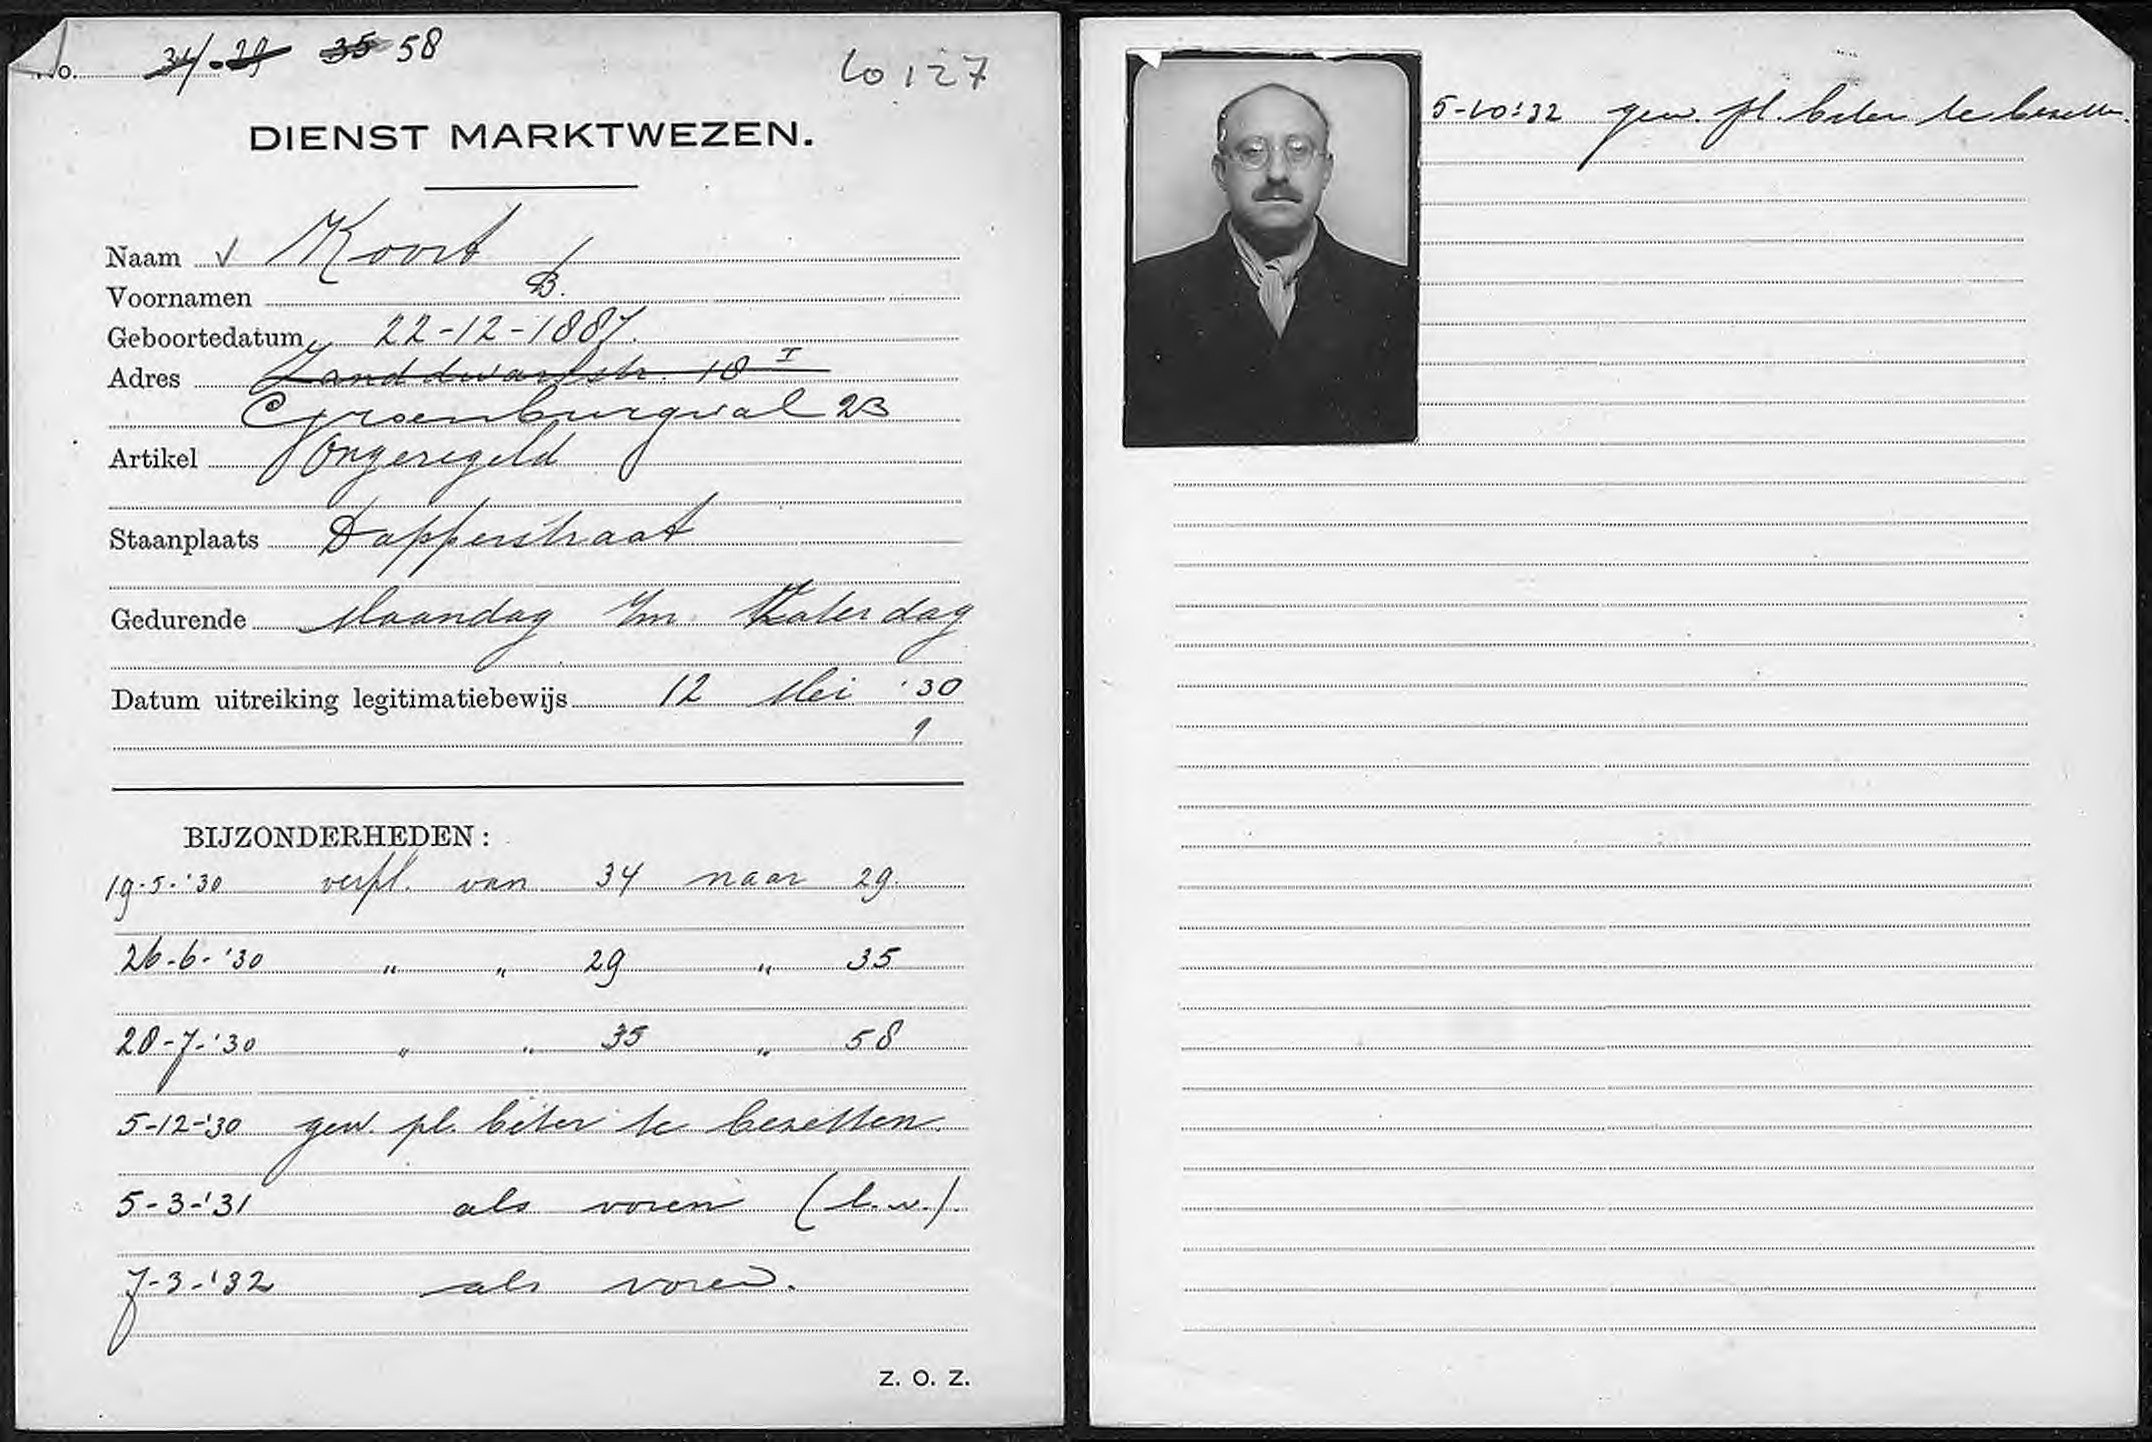 No. 34 - 29 35 58
Lo 127
DIENST MARKTWEZEN.
Naam v Koort
Voornamen B.
Geboortedatum 22-12-1887.
Adres Zanddwarsstr. 18 I
Groenburgwal 23
Artikel Ongeregeld
Staanplaats Dapperstraat
Gedurende Maandag t/m Zaterdag
Datum uitreiking legitimatiebewijs 12 Mei '30
BIJZONDERHEDEN:
19-5-'30 verpl. van 34 naar 29.
26-6-'30 " " 29 " 35
28-7-'30 " " 35 " 58
5-12-'30 gew. pl. beter te bezetten.
5-3-'31 als voren (l.w.).
7-3-'32 als voren.
Z. O. Z.
5-10-'32 gew. pl. beter te bezetten.